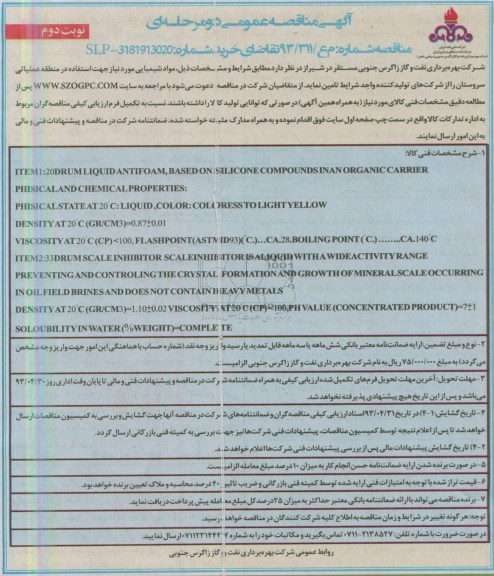 آگهی مناقصه عمومی دو مرحله‌ای
نوبت دوم
مناقصه شماره: م ع/۹۳/۳۱۱ تقاضای خرید شماره: SLP-3181913020
شرکت بهره‌برداری نفت و گاز زاگرس جنوبی مستقر در شیراز در نظر دارد مطابق شرایط و مشخصات ذیل، مواد شیمیایی مورد نیاز جهت استفاده در منطقه عملیاتی
سروستان را از شرکت‌های تولیدکننده واجد شرایط تامین نماید. از متقاضیان شرکت در مناقصه دعوت می‌شود با مراجعه به سایت WWW.SZOGPC.COM پس از
مطالعه دقیق مشخصات فنی کالای مورد نیاز (به همراه همین آگهی) در صورتی که توانایی تولید کالا را داشته باشند، نسبت به تکمیل فرم ارزیابی کیفی مناقصه‌گران مربوط
به اداره تدارکات کالا واقع در سمت چپ صفحه اول سایت فوق اقدام نموده و به همراه مدارک مثبته خواسته شده، ضمانتنامه شرکت در مناقصه و پیشنهادات فنی و مالی
به این امور ارسال نمایند.
۱- شرح مشخصات فنی کالا:
ITEM1:20DRUM LIQUID ANTIFOAM, BASED ON SILICONE COMPOUNDS IN AN ORGANIC CARRIER
PHISICAL AND CHEMICAL PROPERTIES:
PHISICAL STATE AT 20°C: LIQUID , COLOR: COLORESS TO LIGHT YELLOW
DENSITY AT 20°C (GR/CM3)=0.87±0.01
VISCOSITY AT 20°C (CP) <100, FLASH POINT (ASTM D93)(°C.)...CA.28.BOILING POINT (°C.) ........CA.140°C
ITEM2:33DRUM SCALE INHIBITOR SCALE INHIBITOR IS A LIQUID WITH A WIDE ACTIVITY RANGE
PREVENTING AND CONTROLING THE CRYSTAL FORMATION AND GROWTH OF MINERAL SCALE OCCURRING
IN OILFIELD BRINES AND DOES NOT CONTAIN HEAVY METALS
DENSITY AT 20°C (GR/CM3)=1.10±0.02 VISCOSITY AT 20°C (CP)=<100,PH VALUE (CONCENTRATED PRODUCT)=7±1
SOLOUBILITY IN WATER (%WEIGHT)=COMPLETE
۲- نوع و مبلغ تضمین: ارایه ضمانت‌نامه معتبر بانکی شش ماهه یا سه ماهه قابل تمدید یا رسید واریز وجه نقد (شماره حساب با هماهنگی این امور جهت واریز وجه مشخص
می‌گردد) به مبلغ ۷۵/۰۰۰/۰۰۰ ریال به نام شرکت بهره‌برداری نفت و گاز زاگرس جنوبی الزامیست.
۳- مهلت تحویل: آخرین مهلت تحویل فرم‌های تکمیل شده ارزیابی کیفی به همراه ضمانتنامه شرکت در مناقصه و پیشنهادات فنی و مالی تا پایان وقت اداری روز ۹۳/۰۴/۳۰
می‌باشد و پس از این تاریخ هیچ پیشنهادی پذیرفته نخواهد شد.
۴- تاریخ گشایش: ۱-۴) در تاریخ ۹۳/۰۴/۳۱ اسناد ارزیابی کیفی مناقصه گران و ضمانتنامه‌های شرکت در مناقصه آنها جهت گشایش و بررسی به کمیسیون مناقصات ارسال
خواهد شد تا پس از اعلام نتیجه توسط کمیسیون مناقصات، پیشنهادات فنی شرکت‌ها نیز جهت بررسی به کمیته فنی بازرگانی ارسال گردد.
۲-۴) تاریخ گشایش پیشنهادات مالی پس از بررسی پیشنهادات فنی شرکت‌ها اعلام خواهد شد.
۵- در صورت برنده شدن ارایه ضمانت‌نامه حسن انجام کار به میزان ۱۰ درصد مبلغ معامله الزامیست.
۶- قیمت تراز شده با توجه به امتیازات فنی ارایه شده توسط کمیته فنی بازرگانی و ضریب تاثیر ۴۰ درصد محاسبه و ملاک تعیین برنده خواهد بود.
۷- برنده مناقصه می‌تواند با ارائه ضمانتنامه بانکی معتبر حداکثر به میزان ۲۵ درصد کل مبلغ معامله پیش پرداخت دریافت نماید.
توجه: هر گونه تغییر در شرایط و زمان مناقصه به اطلاع کلیه شرکت کنندگان در مناقصه خواهد رسید.
در صورت ضرورت با شماره تلفن: ۰۷۱۱-۲۱۳۸۵۲۷ تماس بگیرید و مکاتبات خود را به شماره ۰۷۱۱۲۳۱۴۴۴۷ ارسال نمایید.
روابط عمومی شرکت بهره‌برداری نفت و گاز زاگرس جنوبی